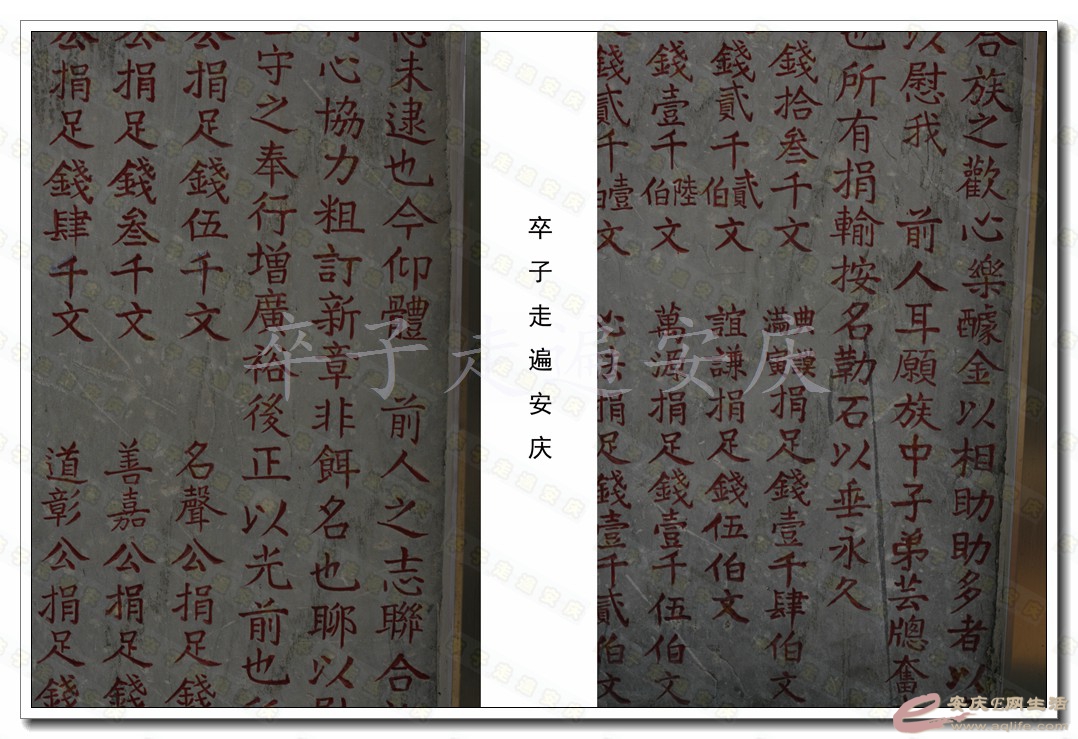 合族之歡心樂醵金以相助助多者以
以慰我 前人耳願族中子弟芸牕奮
也所有捐輸按名勒石以垂永久
錢拾叁千文 捐足錢壹千肆伯文
錢貳千貳伯文 誼謙捐足錢伍伯文
錢壹千陸伯文 萬源捐足錢壹千伍伯文
錢貳千壹伯文 捐足錢壹千貳伯文
卒子走遍安庆
志未逮也今仰體 前人之志聯合
心協力粗訂新章非餌名也聊以慰
守之奉行增廣裕後正以光前也
公捐足錢伍千文 名聲公捐足錢
公捐足錢叁千文 善嘉公捐足錢
公捐足錢肆千文 道彰公捐足錢
卒子走遍安庆
安庆E网生活
www.aqlife.com